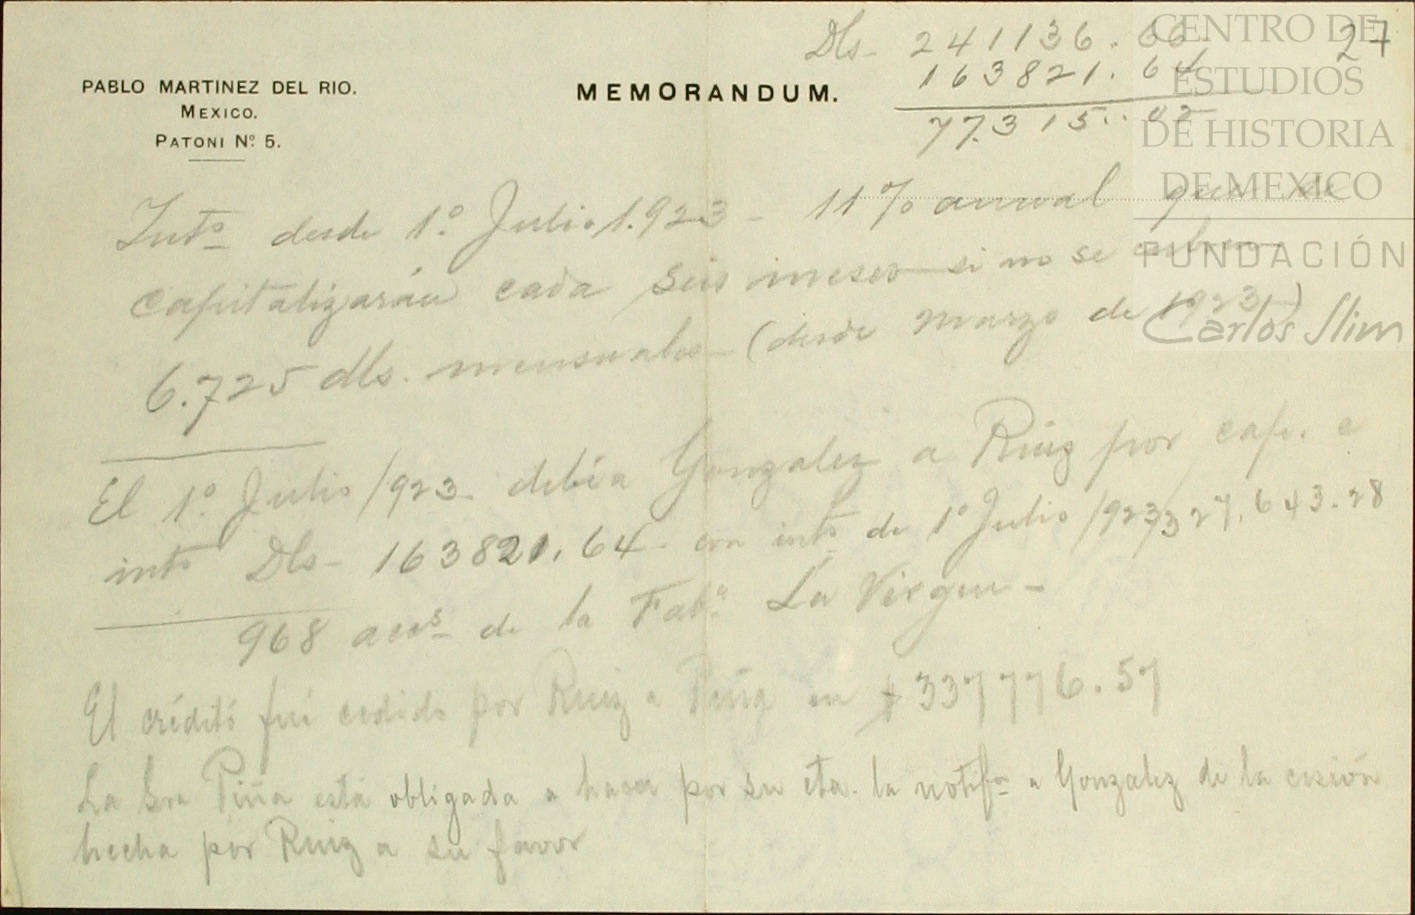 Dls- 241136.66
27
163821.64
77.315..02
PABLO MARTINEZ DEL RIO.
MEXICO.
PATONI Nº 5.
MEMORANDUM.
CENTRO DE
ESTUDIOS
DE HISTORIA
DE MEXICO
FUNDACIÓN
Carlos Slim
Intˢ desde 1º. Julio 1.923 - 11% anual que se
capitalizarán cada seis meses si no se cubren
6.725 dls. mensuales - (desde marzo de 1923)
El 1º. Julio /923 debía Gonzalez a Ruiz por cap. e
intˢ Dls- 163821.64 - con intˢ de 1º Julio /923 327.643.28
968 accˢ de la Fabª La Virgen -
El crédito fué cedido por Ruiz a Piña en $337776.57
La Sra Piña está obligada a hacer por su cta. la notifⁿ a Gonzalez de la cesión
hecha por Ruiz a su favor